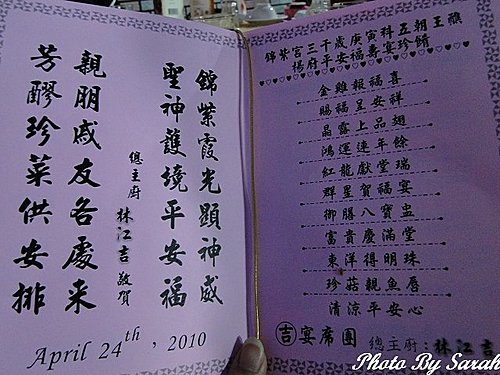 錦紫宮三千歲庚寅科五朝王醮
楊府平安福壽宴珍餚
金雞報福喜
賜福呈安祥
晶露上品翅
鴻運連年餘
紅龍獻堂瑞
群星賀福宴
御膳八寶盅
富貴慶滿堂
東洋得明珠
珍菇親魚唇
清涼平安心
吉宴席團 總主廚：林江吉
錦紫霞光顯神威
聖神護境平安福
總主廚 林江吉 敬賀
親朋戚友各處來
芳醪珍菜供安排
April 24th, 2010
Photo By Sarah